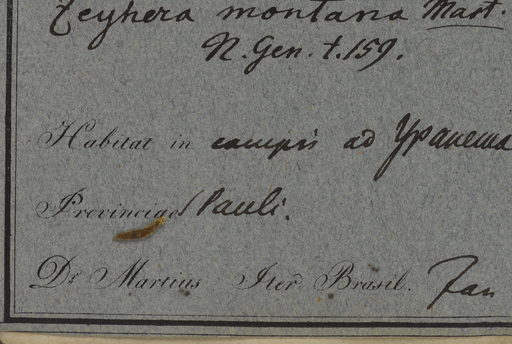 Zeyhera montana Mart.
N. Gen. t. 159.
Habitat in campis ad Ypanema
Provinciae S Pauli.
Dr Martius Iter Brasil. Jan